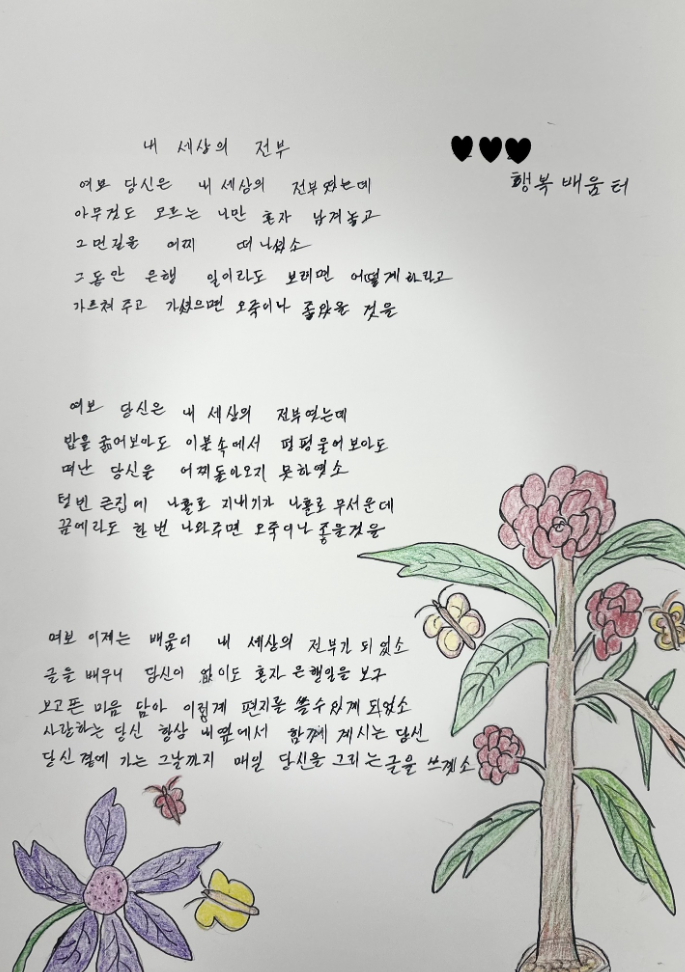 내 세상의 전부
행복 배움터
여보 당신은 내 세상의 전부였는데
아무것도 모르는 나만 혼자 남겨놓고
그 먼길을 어찌 떠나셨소
그동안 은행 일이라도 보려면 어떻게 하라고
가르쳐 주고 가셨으면 오죽이나 좋았을 것을
여보 당신은 내 세상의 전부였는데
밥을 굶어보아도 이불속에서 펑펑울어보아도
떠난 당신을 어찌돌아오지 못하였소
텅 빈 큰집에 나홀로 지내기가 나홀로 무서운데
꿈에라도 한 번 나와주면 오죽이나 좋을것을
여보 이제는 배움터 내 세상의 전부가 되었소
글을 배우니 당신이 없이도 혼자 은행일을 보구
보고픈 마음 담아 이렇게 편지를 쓸수있게 되었소
사랑하는 당신 항상 내옆에서 함께 계시는 당신
당신곁에 가는 그날까지 매일 당신을 그리는글을 쓰겠소